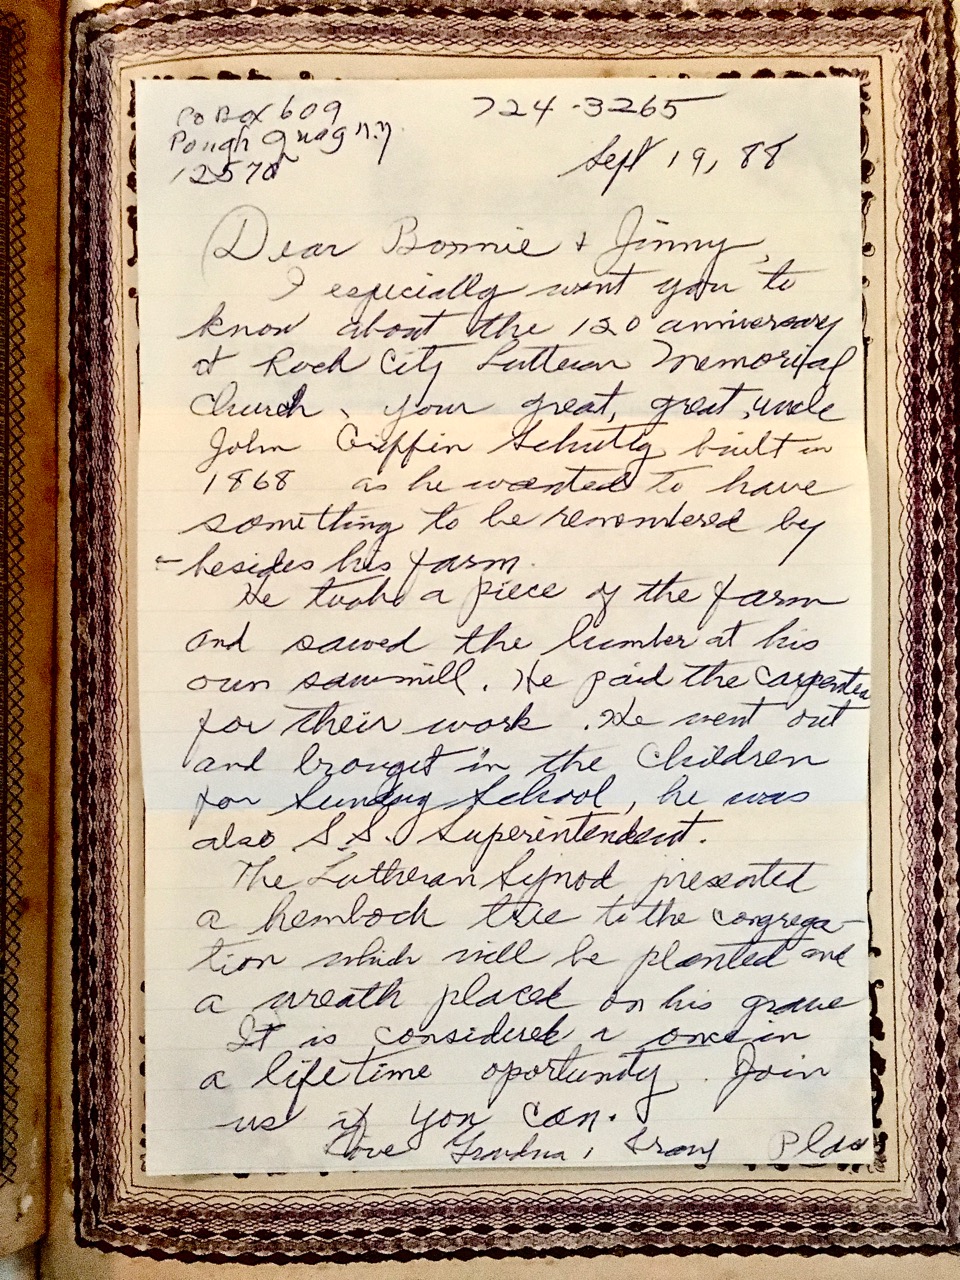 Po Box 609
724-3265
Poughquag N.Y.
12570
Sept 19, 88
Dear Bonnie + Jimmy,
I especially want you to
know about the 120 anniversary
at Rock City Lutheran Memorial
Church, your great, great, uncle
John Griffin Schultz built in
1868 as he wanted to have
something to be remembered by
- besides his farm.
He took a piece of the farm
and sawed the lumber at his
own sawmill. He paid the carpenters
for their work. He went out
and brouget in the children
for Sunday School, he was
also S.S. Superintendent.
The Lutheran Synod presented
a hemlock tree to the congrega-
tion which will be planted and
a wreath placed on his grave
It is considered a once in
a lifetime oportunity. Join
us if you can.
Love Grandma,